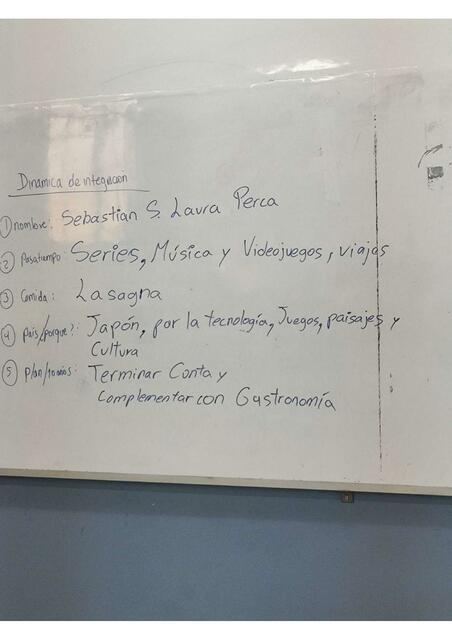 Dinamica de integracion
① nombre: Sebastian S. Laura Perca
② Pasatiempo: Series, Música y Videojuegos, viajes
③ Comida: Lasagna
④ país/porque?: Japón, por la tecnología, Juegos, paisajes y
Cultura
⑤ plan/10 años: Terminar Conta y
Complementar con Gastronomía